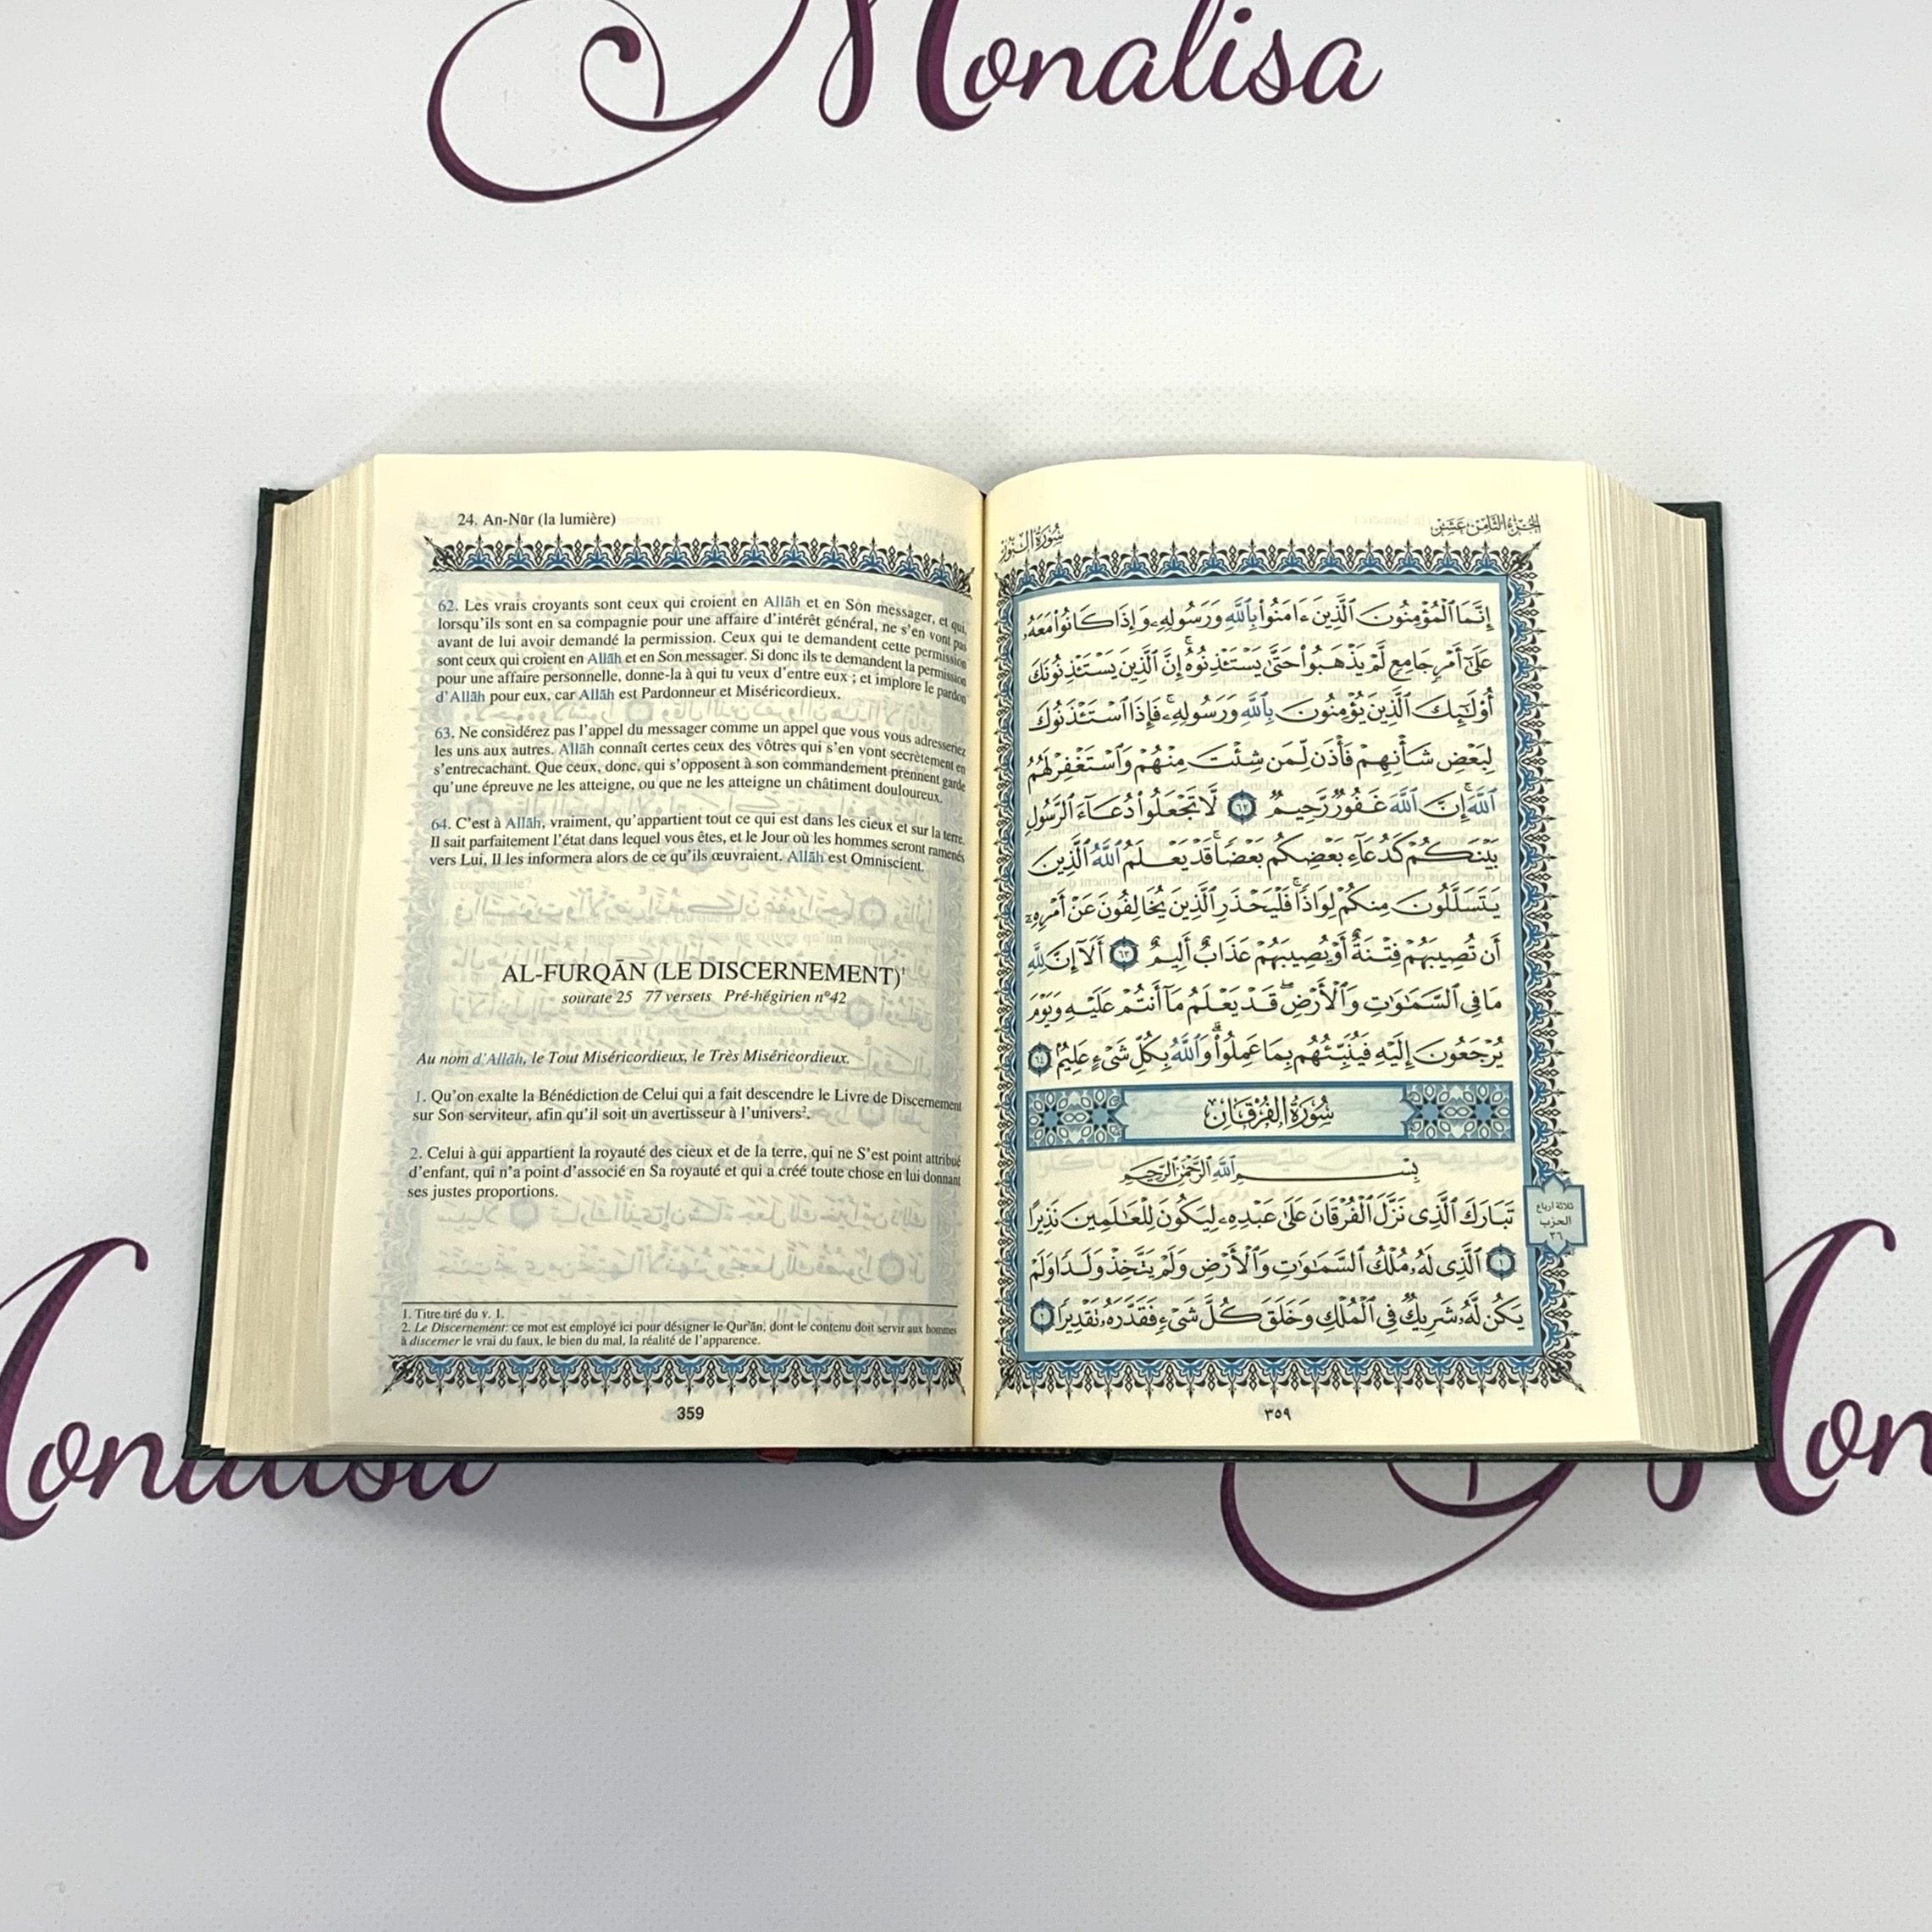 Monalisa
24. An-Nūr (la lumière)
62. Les vrais croyants sont ceux qui croient en Allāh et en Son messager, et qui,
lorsqu'ils sont en sa compagnie pour une affaire d'intérêt général, ne s'en vont pas
avant de lui avoir demandé la permission. Ceux qui te demandent cette permission
sont ceux qui croient en Allāh et en Son messager. Si donc ils te demandent la permission
pour une affaire personnelle, donne-la à qui tu veux d'entre eux ; et implore le pardon
d'Allāh pour eux, car Allāh est Pardonneur et Miséricordieux.
63. Ne considérez pas l'appel du messager comme un appel que vous vous adresseriez
les uns aux autres. Allāh connaît certes ceux des vôtres qui s'en vont secrètement en
s'entrecachant. Que ceux, donc, qui s'opposent à son commandement prennent garde
qu'une épreuve ne les atteigne, ou que ne les atteigne un châtiment douloureux.
64. C'est à Allāh, vraiment, qu'appartient tout ce qui est dans les cieux et sur la terre.
Il sait parfaitement l'état dans lequel vous êtes, et le Jour où les hommes seront ramenés
vers Lui, Il les informera alors de ce qu'ils œuvraient. Allāh est Omniscient.
AL-FURQĀN (LE DISCERNEMENT)¹
sourate 25 77 versets Pré-hégirien n°42
Au nom d'Allāh, le Tout Miséricordieux, le Très Miséricordieux.
1. Qu'on exalte la Bénédiction de Celui qui a fait descendre le Livre de Discernement
sur Son serviteur, afin qu'il soit un avertisseur à l'univers².
2. Celui à qui appartient la royauté des cieux et de la terre, qui ne S'est point attribué
d'enfant, qui n'a point d'associé en Sa royauté et qui a créé toute chose en lui donnant
ses justes proportions.
1. Titre tiré du v. 1.
2. Le Discernement: ce mot est employé ici pour désigner le Qur'ān, dont le contenu doit servir aux hommes
à discerner le vrai du faux, le bien du mal, la réalité de l'apparence.
359
الجزء الثامن عشر
سورة النور
إِنَّمَا ٱلْمُؤْمِنُونَ ٱلَّذِينَ ءَامَنُوا۟ بِٱللَّهِ وَرَسُولِهِۦ وَإِذَا كَانُوا۟ مَعَهُۥ
عَلَىٰٓ أَمْرٍ جَامِعٍ لَّمْ يَذْهَبُوا۟ حَتَّىٰ يَسْتَـْٔذِنُوهُ ۚ إِنَّ ٱلَّذِينَ يَسْتَـْٔذِنُونَكَ
أُو۟لَـٰٓئِكَ ٱلَّذِينَ يُؤْمِنُونَ بِٱللَّهِ وَرَسُولِهِۦ ۚ فَإِذَا ٱسْتَـْٔذَنُوكَ
لِبَعْضِ شَأْنِهِمْ فَأْذَن لِّمَن شِئْتَ مِنْهُمْ وَٱسْتَغْفِرْ لَهُمُ
ٱللَّهَ ۚ إِنَّ ٱللَّهَ غَفُورٌ رَّحِيمٌ ٦٢ لَّا تَجْعَلُوا۟ دُعَآءَ ٱلرَّسُولِ
بَيْنَكُمْ كَدُعَآءِ بَعْضِكُم بَعْضًا ۚ قَدْ يَعْلَمُ ٱللَّهُ ٱلَّذِينَ
يَتَسَلَّلُونَ مِنكُمْ لِوَاذًا ۚ فَلْيَحْذَرِ ٱلَّذِينَ يُخَالِفُونَ عَنْ أَمْرِهِۦٓ
أَن تُصِيبَهُمْ فِتْنَةٌ أَوْ يُصِيبَهُمْ عَذَابٌ أَلِيمٌ ٦٣ أَلَآ إِنَّ لِلَّهِ
مَا فِى ٱلسَّمَـٰوَٰتِ وَٱلْأَرْضِ ۖ قَدْ يَعْلَمُ مَآ أَنتُمْ عَلَيْهِ وَيَوْمَ
يُرْجَعُونَ إِلَيْهِ فَيُنَبِّئُهُم بِمَا عَمِلُوا۟ ۗ وَٱللَّهُ بِكُلِّ شَىْءٍ عَلِيمٌۢ ٦٤
سُورَةُ الْفُرْقَانِ
بِسْمِ ٱللَّهِ ٱلرَّحْمَـٰنِ ٱلرَّحِيمِ
تَبَارَكَ ٱلَّذِى نَزَّلَ ٱلْفُرْقَانَ عَلَىٰ عَبْدِهِۦ لِيَكُونَ لِلْعَـٰلَمِينَ نَذِيرًا
١ ٱلَّذِى لَهُۥ مُلْكُ ٱلسَّمَـٰوَٰتِ وَٱلْأَرْضِ وَلَمْ يَتَّخِذْ وَلَدًا وَلَمْ
يَكُن لَّهُۥ شَرِيكٌ فِى ٱلْمُلْكِ وَخَلَقَ كُلَّ شَىْءٍ فَقَدَّرَهُۥ تَقْدِيرًا ٢
ثلاثة أرباع
الحزب
٣٦
٣٥٩
Monalisa